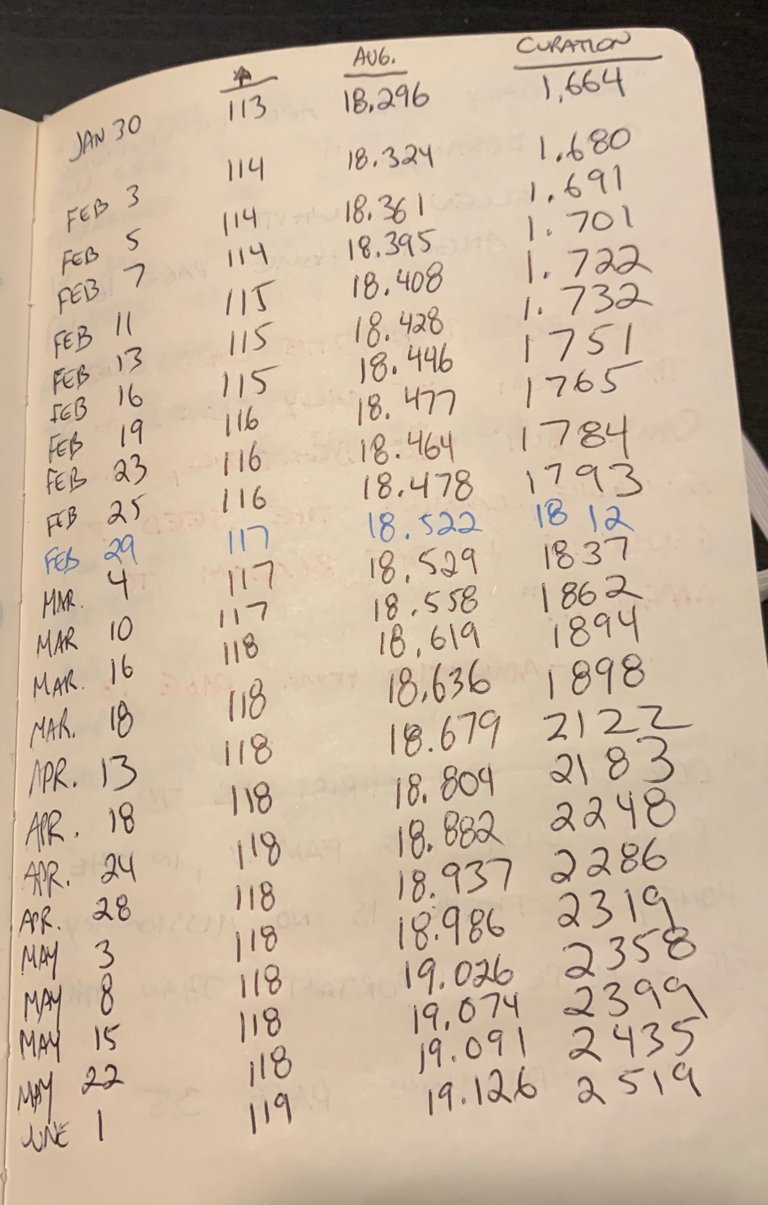 A AUG. CURATION
JAN 30 113 18,296 1,664
FEB 3 114 18.324 1.680
FEB 5 114 18.361 1.691
FEB 7 114 18.395 1.701
FEB 11 115 18.408 1.722
FEB 13 115 18.428 1.732
FEB 16 115 18.446 1751
FEB 19 116 18.477 1765
FEB 23 116 18.464 1784
FEB 25 116 18.478 1793
FEB 29 117 18.522 1812
MAR. 4 117 18.529 1837
MAR 10 117 18.558 1862
MAR. 16 118 18,619 1894
MAR. 18 118 18,636 1898
APR. 13 118 18.679 2122
APR. 18 118 18.804 2183
APR. 24 118 18.882 2248
APR. 28 118 18.937 2286
MAY 3 118 18.986 2319
MAY 8 118 19.026 2358
MAY 15 118 19,074 2399
MAY 22 118 19.091 2435
JUNE 1 119 19.126 2519